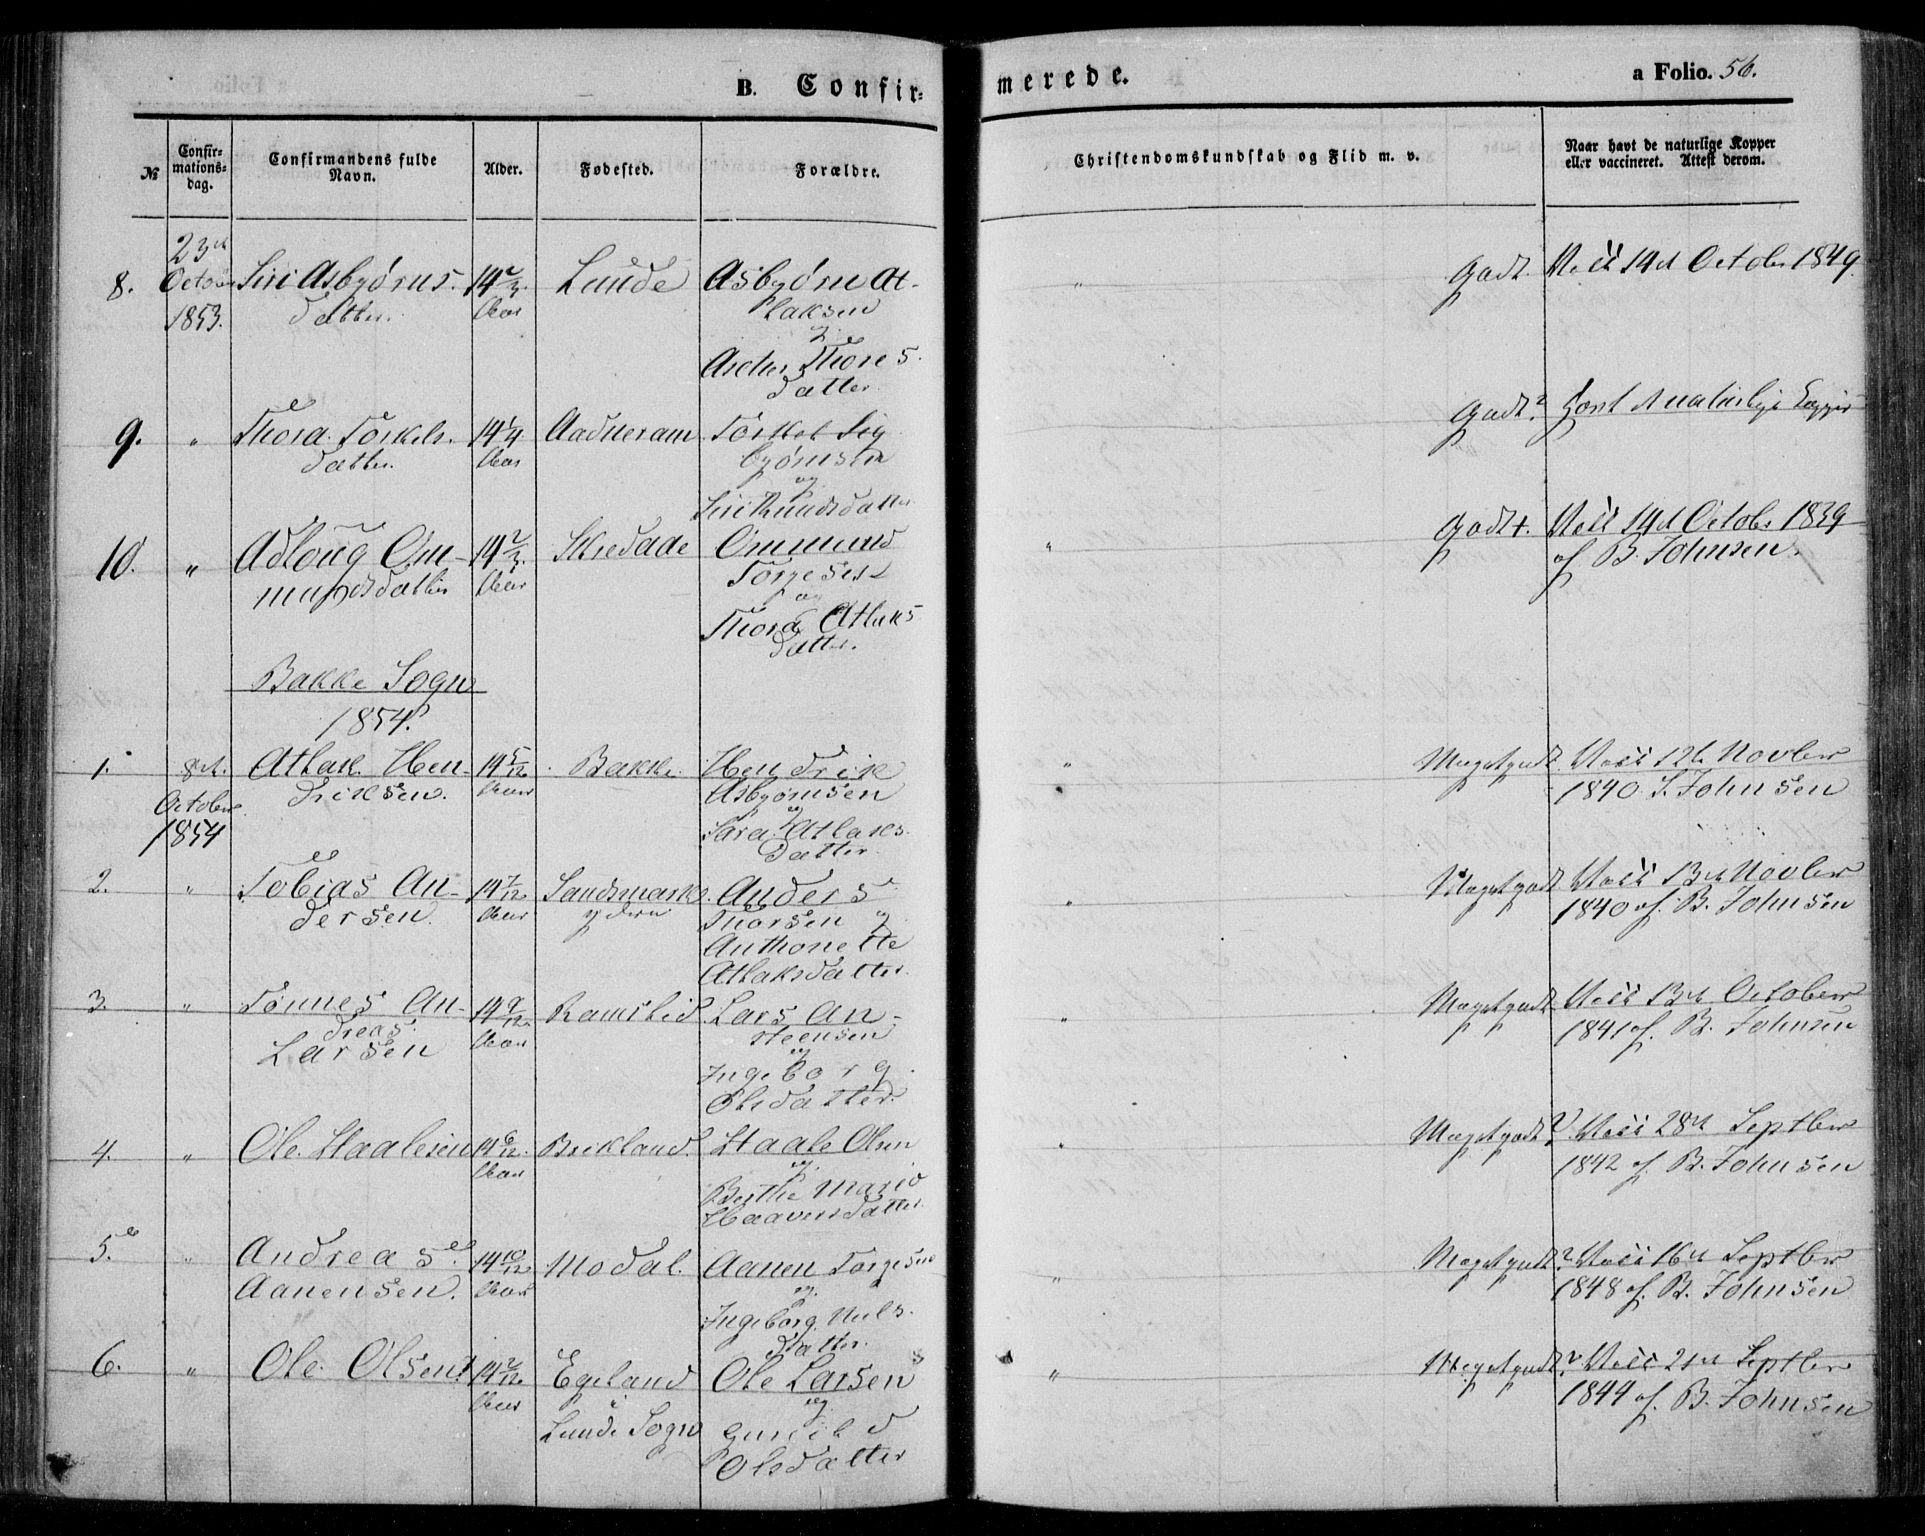 B. Confir=
merede.
a Folio. 56.
№
Confir=
mations=
dag.
Confirmandens fulde
Navn.
Alder.
Fødested.
Forældre.
Christendomskundskab og Flid m. v.
Naar havt de naturlige Kopper
eller vaccineret. Attest derom.
8.
23de
October
1853.
Siri Asbyørns
datter.
14 2/3
Aar
Lunde
Asbyørn At-
laksen
Thores
datter
"
godt
Vacc 14d October 1849.
9.
"
Thora Torkels
datter.
14 1/4
Aar
Aadneram
Torkel Sig
byørnsen
og
Siri Knudsdatter
godt?
havt d naturlige Kopper
10.
"
Adloug Om-
mundsdatter
14 2/3
Aar
Skredaae
Ommund
Torgesen
og
Thora Atlaks
datter.
"
godt +.
Vacc 14d Octobr 1839
af B. Johnsen.
Bakke Sogn
1854.
1.
8de.
October
1854
Atlak Hen-
driksen.
14 5/12
Aar
Bakke
Hendrik
Asbyørnsen
og
Sara Atlaks
datter.
"
Megetgodt
Vacc 12te Novber
1840. Johnsen
2.
"
Tobias An-
dersen.
14 7/12
Aar
Sandsmark
ydern
Anders
Thorsen og
Anthonette
Atlaksdatter
"
Megetgodt
Vacc 13de Novber
1840 af. B. Johnsen
3.
"
Tønnes An-
dreas
Larsen
14 9/12
Aar
Ramslid
Lars An-
steensen
og
Ingeborg
Olsdatter.
"
Megetgodt
Vacc 13de October
1841 af. B. Johnsen
4.
"
Ole Haalesen
14 6/12.
Aar
Birkland
Haale Olsen
og.
Berthe Maria
Haaversdatter
"
Megetgodt?
Vacc 28de Septbr
1842 af. B. Johnsen
5.
"
Andreas
Aanensen.
14 10/12
Aar
Modal.
Aanen Torgesen
og.
Ingeborg Nils
datter.
"
Megetgodt?
Vacc 16de Septbr
1848 af. B. Johnsen
6.
"
Ole Olsen
14 2/12
Aar
Egeland
i
Lunde Sogn
Ole Larsen
og
Gunild
Olsdatter
"
Megetgodt?
Vacc 21de Septbr
1844 af. B. Johnsen